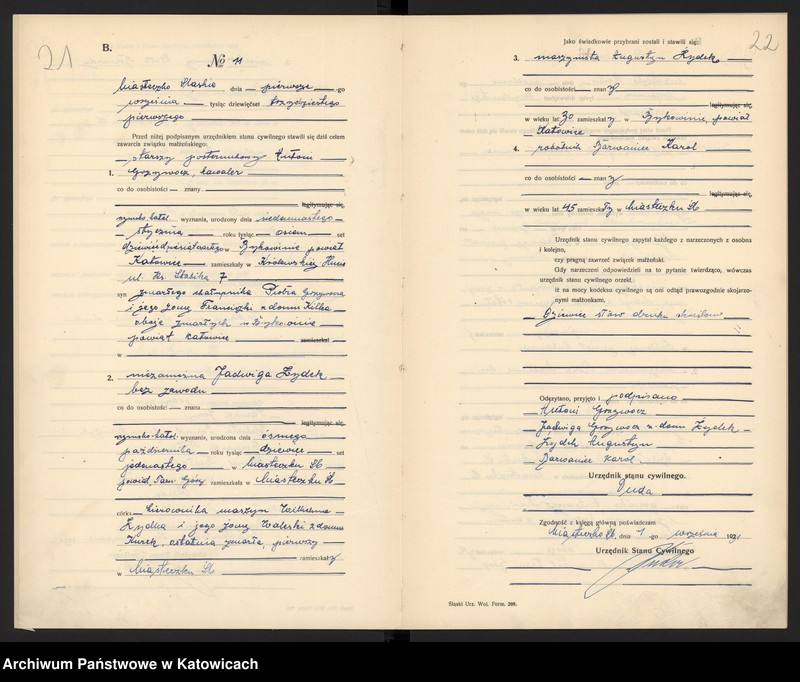 21
B.
№ 11
Miasteczko Śląskie dnia pierwszego -go
września tysiąc dziewięćset trzydziestego
pierwszego
Przed niżej podpisanym urzędnikiem stanu cywilnego stawili się dziś celem
zawarcia związku małżeńskiego:
starszy posterunkowy Antoni
1. Grzywocz, kawaler
co do osobistości — znany
legitymując się,
rzymsko-katol. wyznania, urodzony dnia siedemnastego
stycznia roku tysiąc osiem set
w Bykowinie powiat
Katowice zamieszkały w Królewskiej Hucie
ul. Ks. 7
syn zmarłego chałupnika Piotra Grzywocza
i jego żony Franciszki z domu
oboje zmarłych w Bykowinie
powiat Katowice zamieszkał
w
2. niezamężna Jadwiga Zydek
bez zawodu
co do osobistości — znana
legitymując się,
rzymsko-katol. wyznania, urodzona dnia ósmego
października roku tysiąc dziewięć set
jedenastego w Miasteczku Śl.
powiat Tarn. Góry zamieszkała w Miasteczku Śl.
córka kierownika maszyn Wilhelma
Zydka i jego żony Waleski z domu
Kurek, ostatnia zmarła, pierwszy
zamieszkały
w Miasteczku Śl.
22
Jako świadkowie przybrani zostali i stawili się:
3. maszynista Augustyn Zydek
co do osobistości — znany
legitymując się,
w wieku lat 30 zamieszkały w Bykowinie, powiat
Katowice
4. robotnik Karol
co do osobistości — znany
legitymując się,
w wieku lat 45 zamieszkały w Miasteczku Śl.
Urzędnik stanu cywilnego zapytał każdego z narzeczonych z osobna
i kolejno,
czy pragną zawrzeć związek małżeński.
Gdy narzeczeni odpowiedzieli na to pytanie twierdząco, wówczas
urzędnik stanu cywilnego orzekł,
iż na mocy kodeksu cywilnego są oni odtąd prawozgodnie skojarzo-
nymi małżonkami.
słów druku
Odczytano, przyjęto i podpisano
Antoni Grzywocz
Jadwiga Grzywocz z domu Zydek
Zydek Augustyn
Karol
Urzędnik stanu cywilnego.
Duda
Zgodność z księgą główną poświadczam
Miasteczko Śl., dnia 1 -go września 1931
Urzędnik Stanu Cywilnego
Śląski Urz. Woj. Form. 209.
Archiwum Państwowe w Katowicach